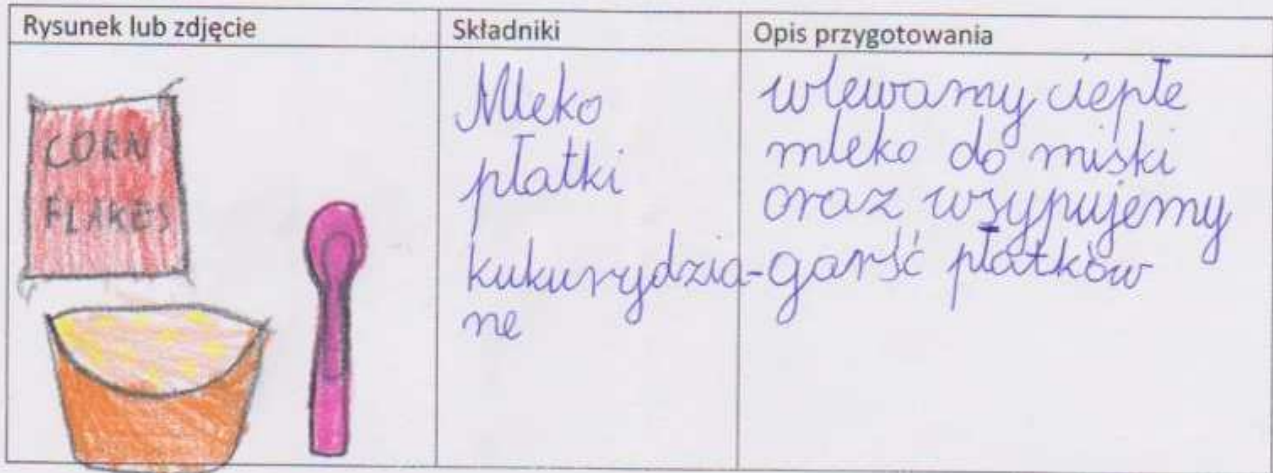 Rysunek lub zdjęcie
Składniki
Opis przygotowania
CORN
FLAKES
Mleko
płatki
kukurydzia-
ne
wlewamy ciepłe
mleko do miski
oraz wsypujemy
garść płatków